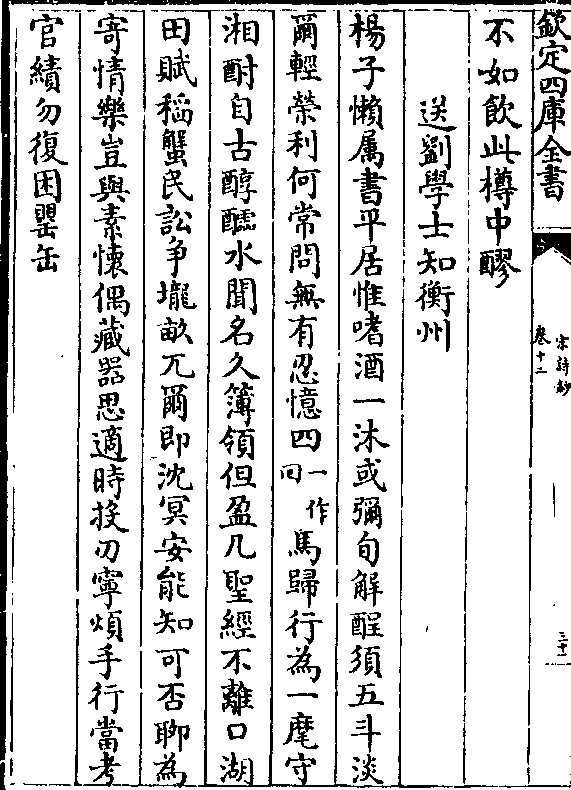 欽定四庫全書
宋詩鈔
卷十二
三十一
不如飲此樽中醪
送劉學士知衡州
楊子懶屬書平居惟嗜酒一沐或彌旬解酲須五斗淡
爾輕榮利何常問無有忍憶四一作回馬歸行為一麾守
湘酎自古醇醽水聞名久簿領但盈几聖經不離口湖
田賦稻蟹民訟爭壠畝兀爾即沈冥安能知可否聊為
寄情樂豈與素懷偶藏器思適時投刃寧煩手行當考
官績勿復困罌缶